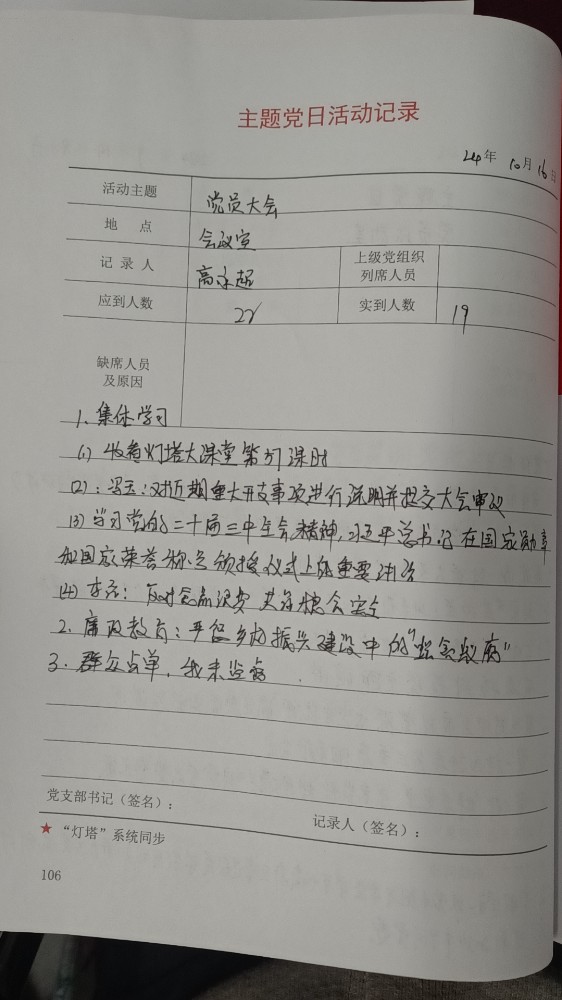 主题党日活动记录
24年 10月 16日
活动主题 党员大会
地 点 会议室
记 录 人 高永超 上级党组织列席人员
应到人数 22 实到人数 19
缺席人员及原因
1、集体学习
(1) 收看灯塔大课堂第37课时
(2)：对近期重大开支事项进行说明并提交大会审议
(3) 学习党的二十届三中全会精神，习近平总书记在国家勋章
和国家荣誉称号颁授仪式上的重要讲话
(4) 反对食品浪费 共享粮食安全
2. 廉政教育：乡村振兴建设中的"蝇贪蚁腐"
3. 群众点单，我来
党支部书记（签名）： 记录人（签名）：
★ “灯塔”系统同步
106